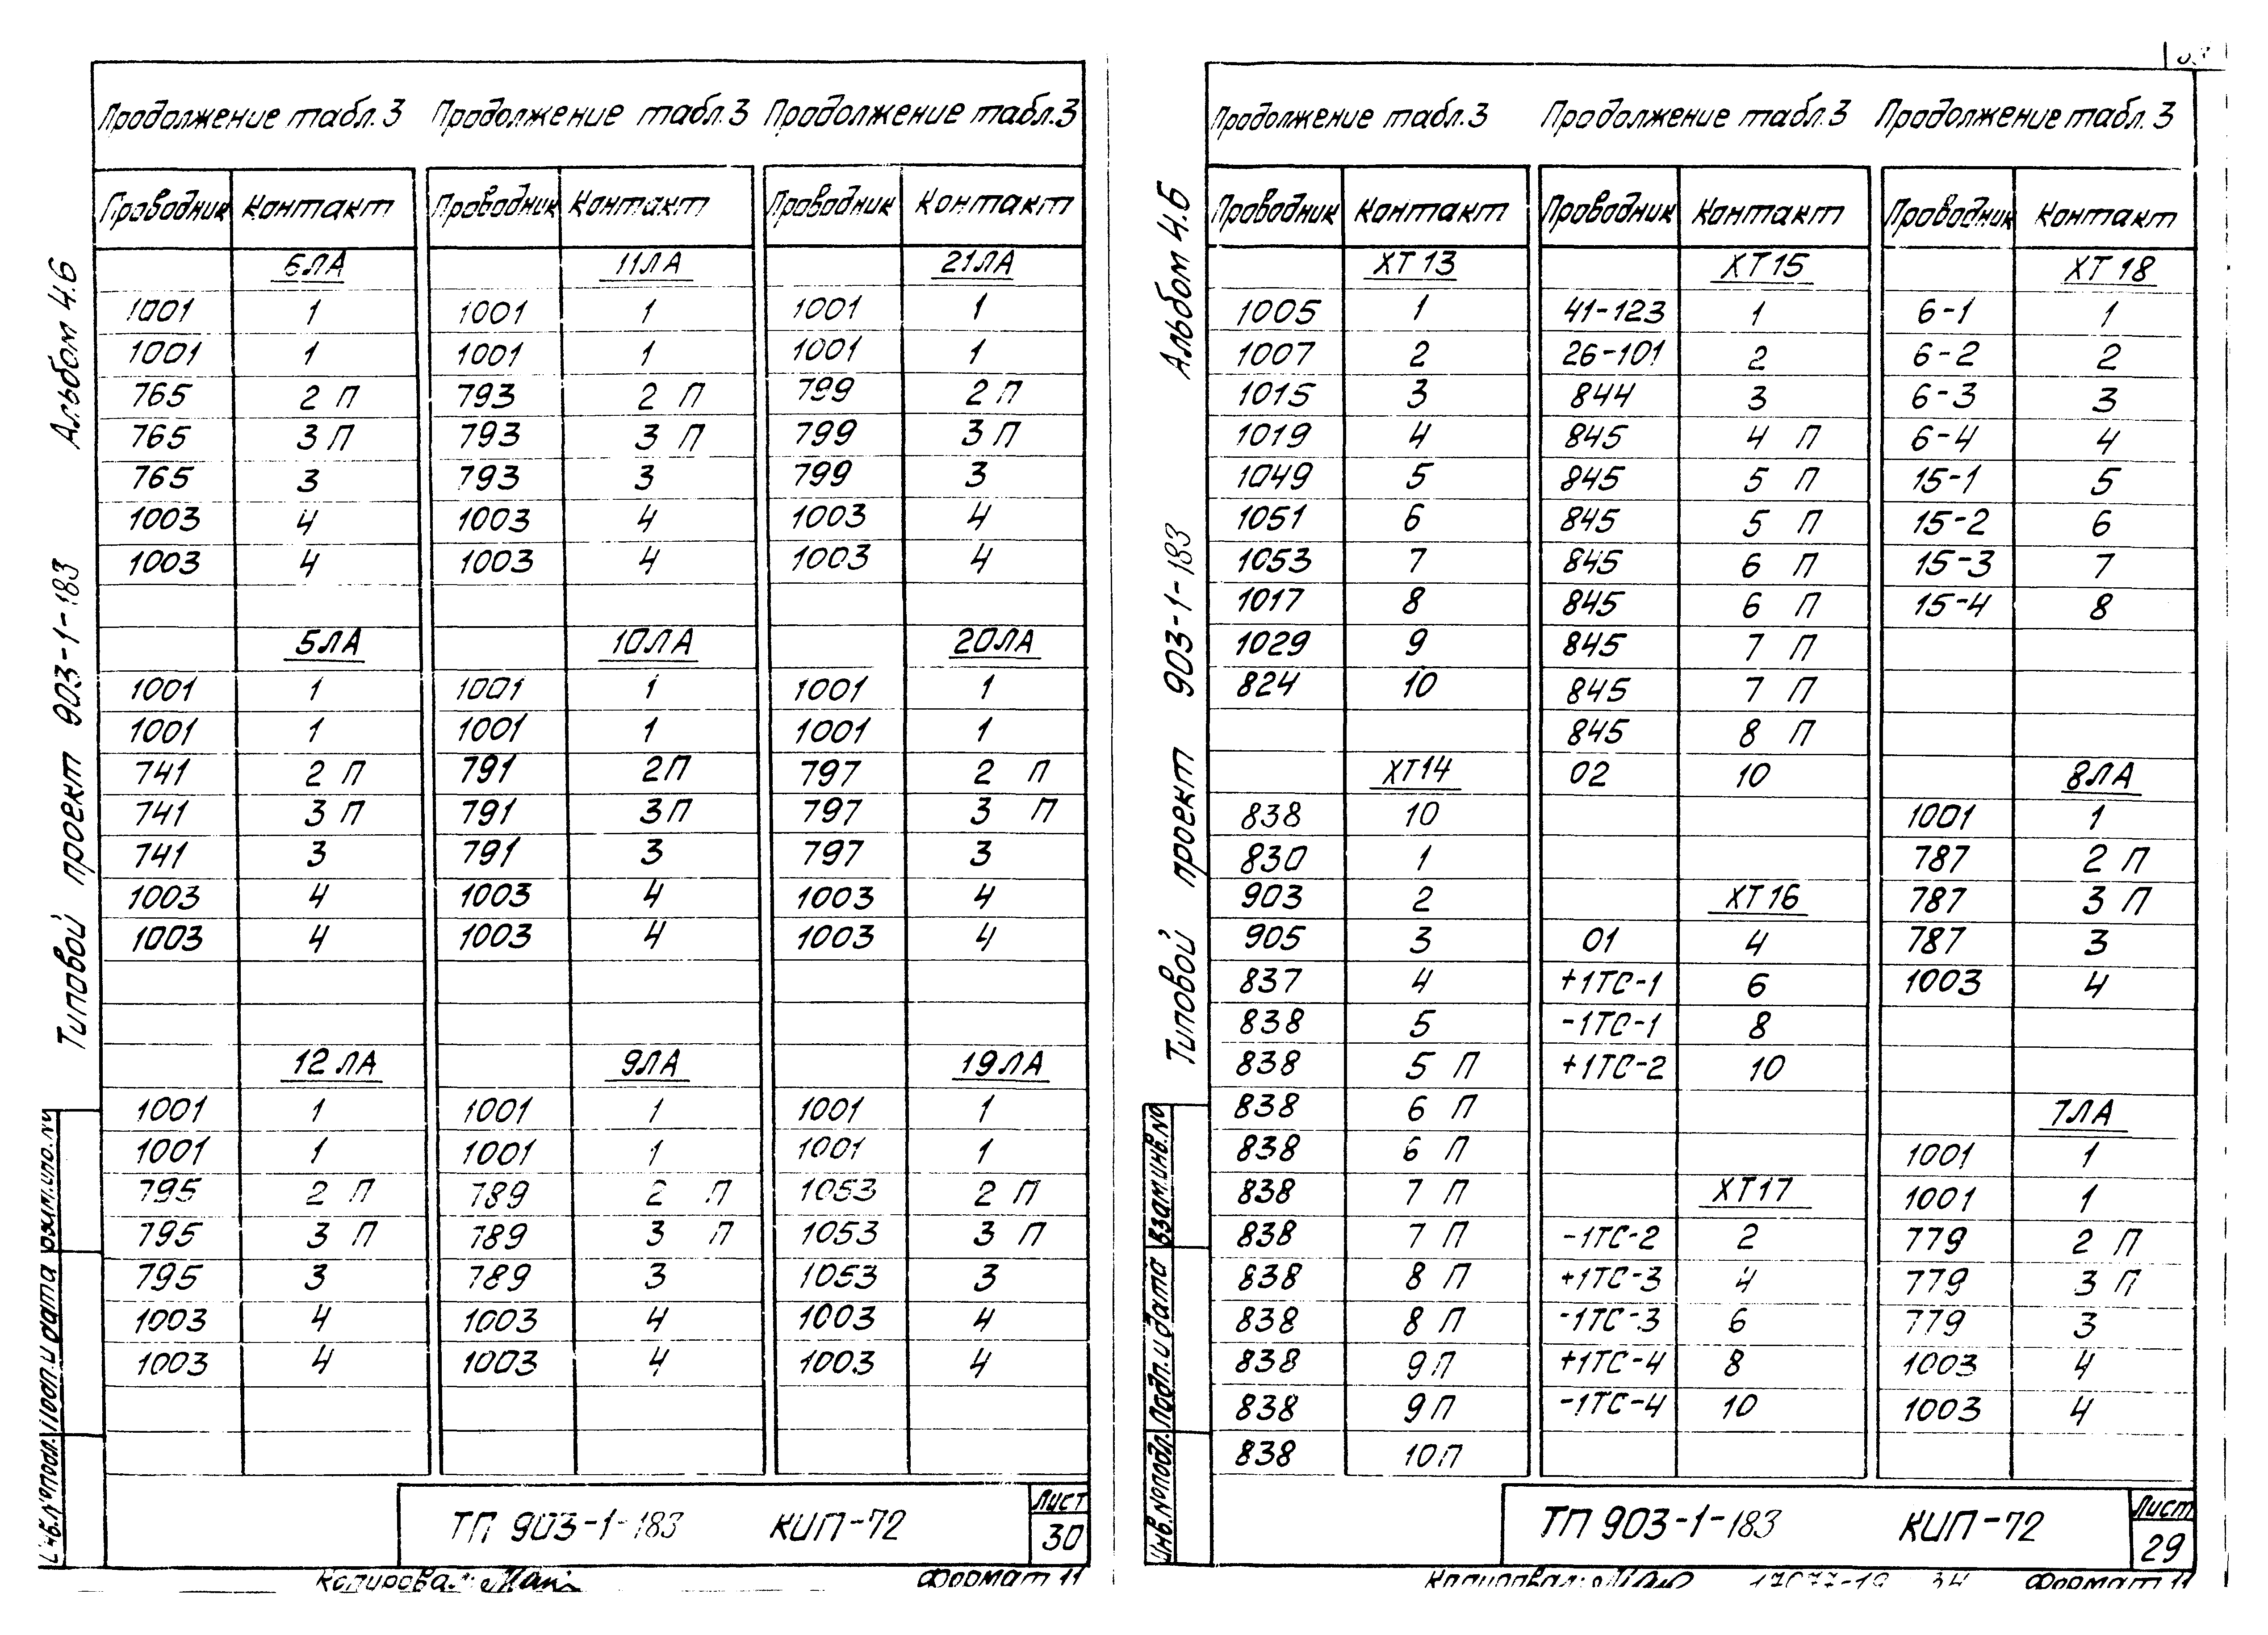 Продолжение табл.3 Продолжение табл.3 Продолжение табл.3
Проводник Контакт Проводник Контакт Проводник Контакт
6ЛА 11ЛА 21ЛА
1001 1 1001 1 1001 1
1001 1 1001 1 1001 1
765 2 П 793 2 П 799 2 П
765 3 П 793 3 П 799 3 П
765 3 793 3 799 3
1003 4 1003 4 1003 4
1003 4 1003 4 1003 4
5ЛА 10ЛА 20ЛА
1001 1 1001 1 1001 1
1001 1 1001 1 1001 1
741 2 П 791 2П 797 2 П
741 3 П 791 3П 797 3 П
741 3 791 3 797 3
1003 4 1003 4 1003 4
1003 4 1003 4 1003 4
12 ЛА 9ЛА 19ЛА
1001 1 1001 1 1001 1
1001 1 1001 1 1001 1
795 2 П 789 2 П 1053 2 П
795 3 П 789 3 П 1053 3 П
795 3 789 3 1053 3
1003 4 1003 4 1003 4
1003 4 1003 4 1003 4
ТП 903-1-183 КИП-72
Лист
30
Копировал:
Формат 11
Типовой проект 903-1-183 Альбом 4.6
Подп. и дата
Продолжение табл.3 Продолжение табл.3 Продолжение табл.3
Проводник Контакт Проводник Контакт Проводник Контакт
ХТ13 ХТ15 ХТ18
1005 1 41-123 1 6-1 1
1007 2 26-101 2 6-2 2
1015 3 844 3 6-3 3
1019 4 845 4 П 6-4 4
1049 5 845 5 П 15-1 5
1051 6 845 5 П 15-2 6
1053 7 845 6 П 15-3 7
1017 8 845 6 П 15-4 8
1029 9 845 7 П
824 10 845 7 П
845 8 П
ХТ14 02 10 8ЛА
838 10 1001 1
830 1 787 2 П
903 2 ХТ16 787 3 П
905 3 01 4 787 3
837 4 +1ТС-1 6 1003 4
838 5 -1ТС-1 8
838 5 П +1ТС-2 10
838 6 П 7ЛА
838 6 П 1001 1
838 7 П ХТ17 1001 1
838 7 П -1ТС-2 2 779 2 П
838 8 П +1ТС-3 4 779 3 П
838 8 П -1ТС-3 6 779 3
838 9П +1ТС-4 8 1003 4
838 9П -1ТС-4 10 1003 4
838 10П
ТП 903-1-183 КИП-72
Лист
29
Копировал:
34
Формат 11
Типовой проект 903-1-183 Альбом 4.6
Инв.№подл. Подп. и дата Взам.инв.№